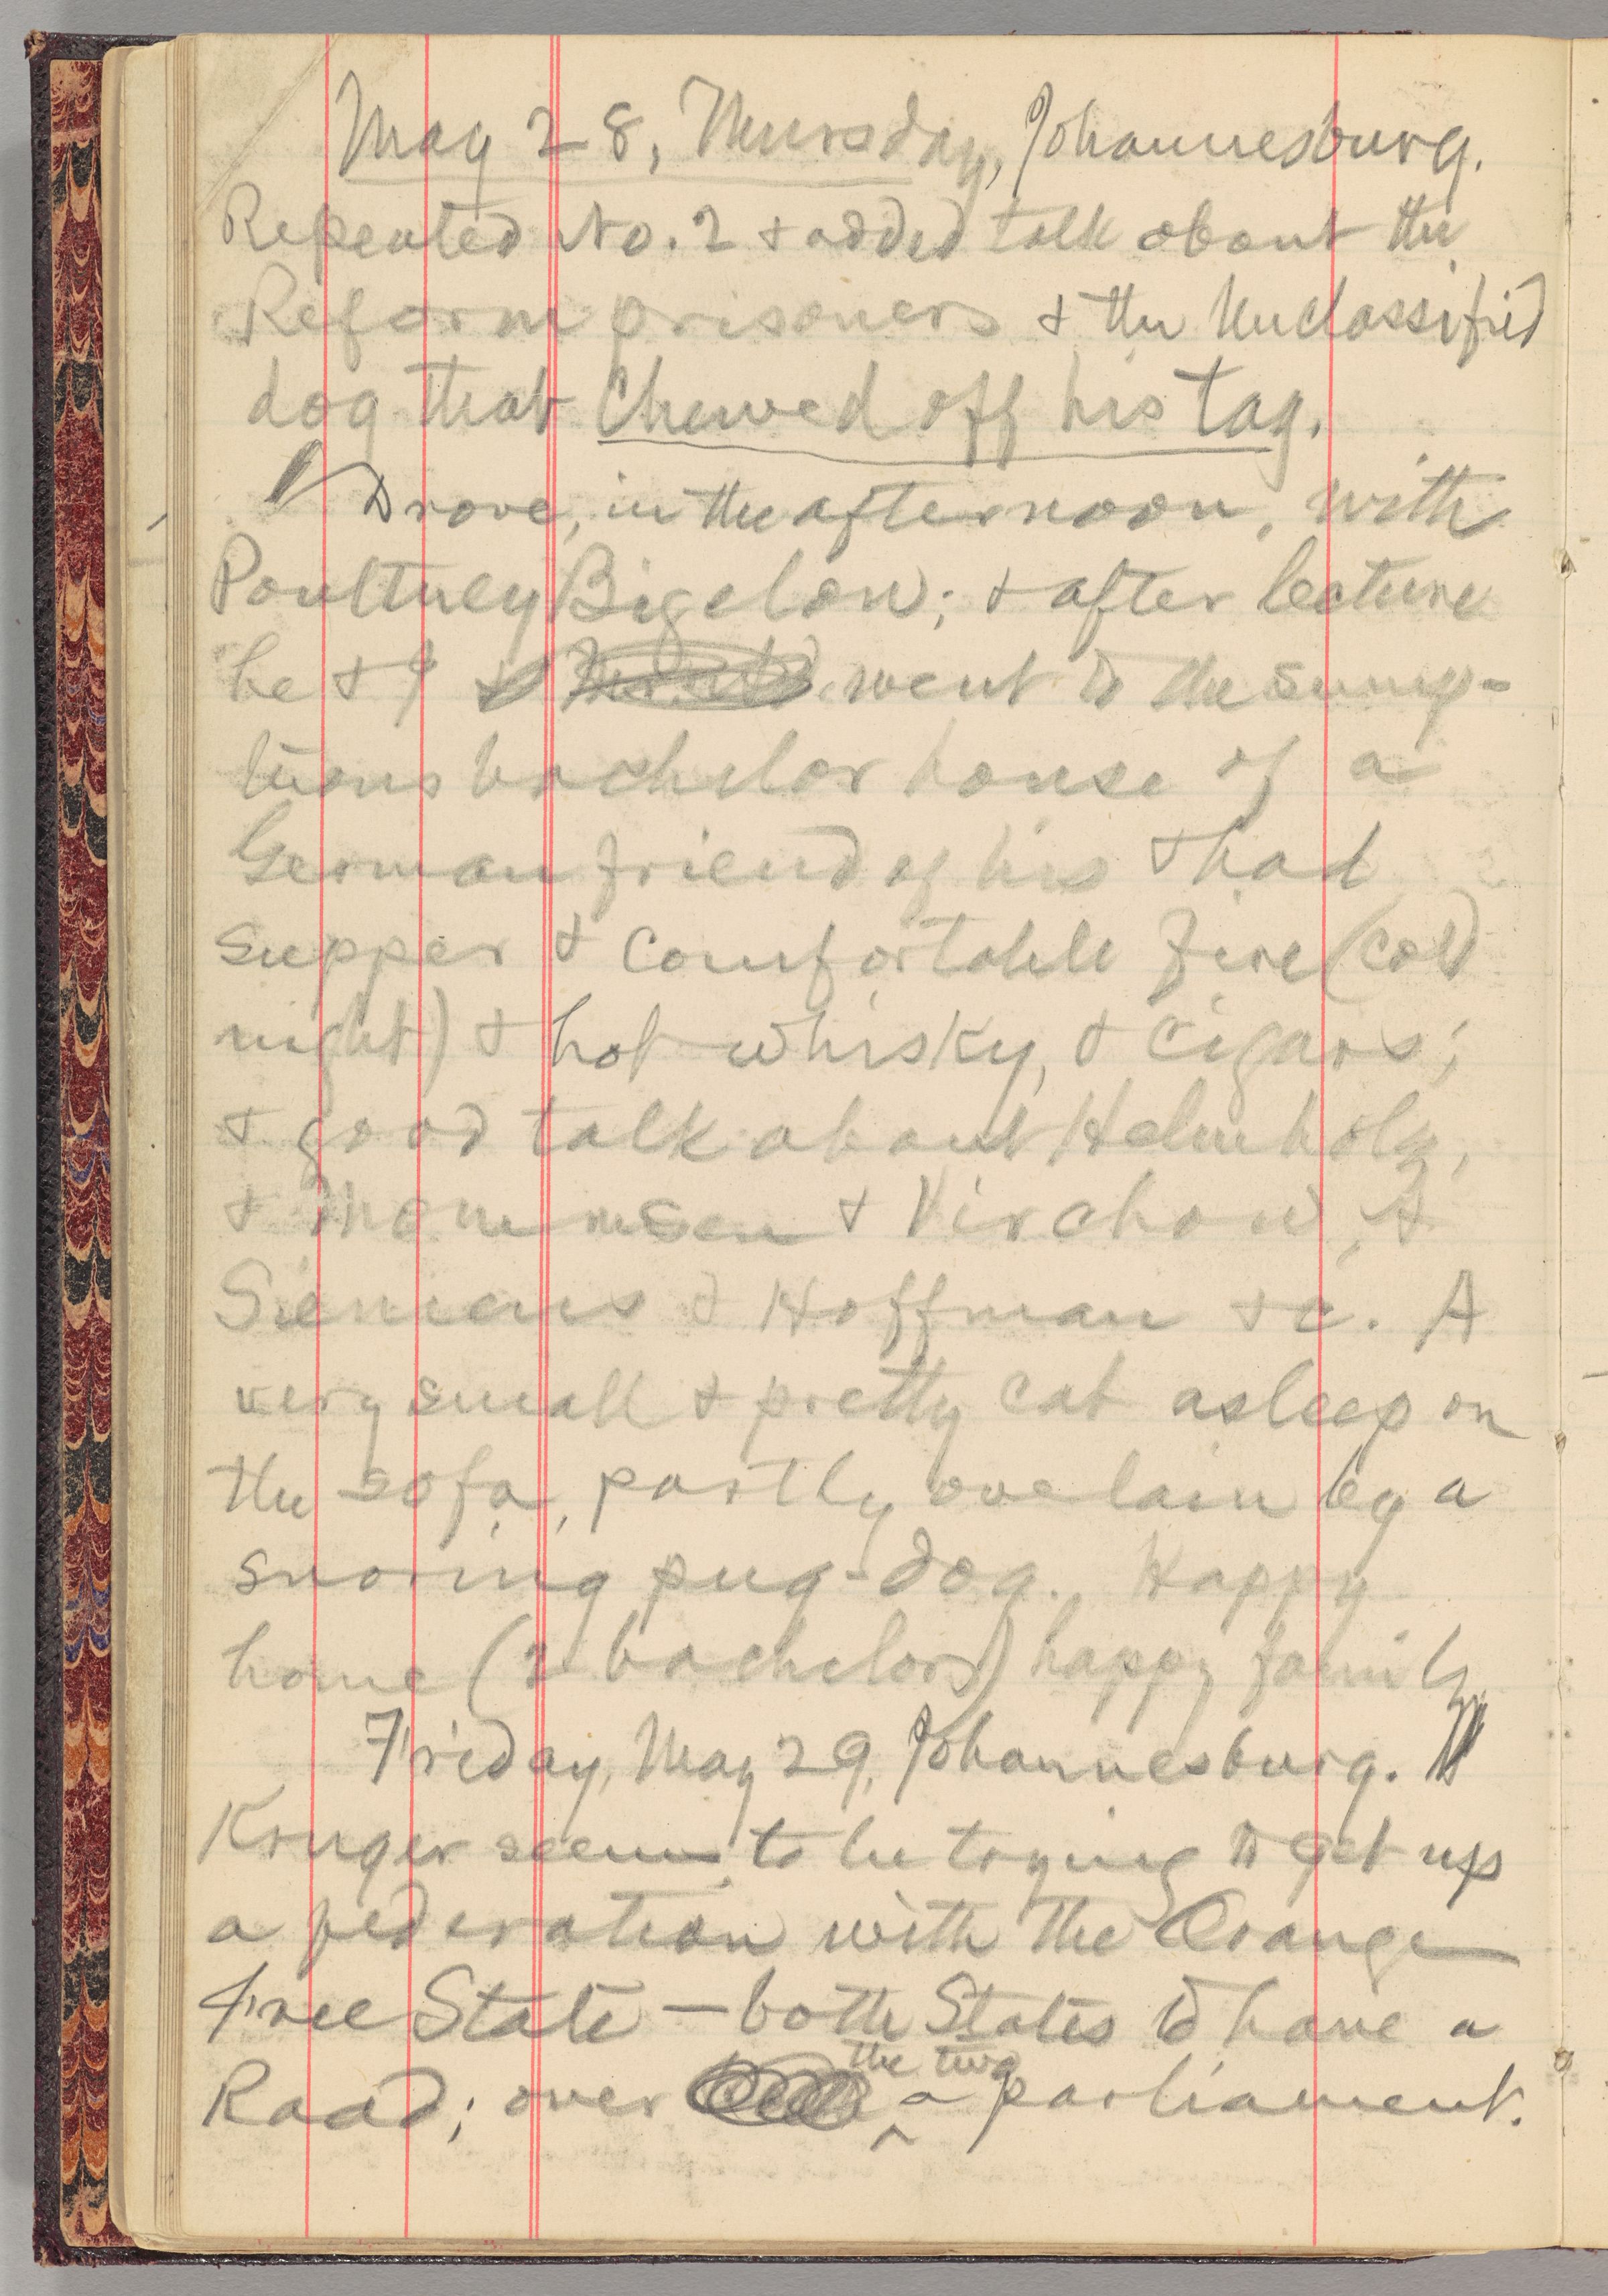 May 28, Thursday, Johannesburg.
Repeated No. 2 & added talk about the
Reform prisoners & the Unclassified
dog that chewed off his tag.
Drove, in the afternoon, with
Poultney Bigelow; & after lecture
he & I went to the sump-
tuous bachelor house of a
German friend of his & had
supper & comfortable fire (cold
night) & hot whisky, & cigars;
& good talk about Helmholz,
& Mommsen & Virchow, &
Siemens & Hoffman &c. A
very small & pretty cat asleep on
the sofa, partly ovelain by a
snoring pug-dog. Happy
home (2 bachelors) happy family.
Friday, May 29, Johannesburg.
Kruger seems to be trying to get up
a federation with the Orange
Free State — both States to have a
the two
Raad; over ^ a parliament.